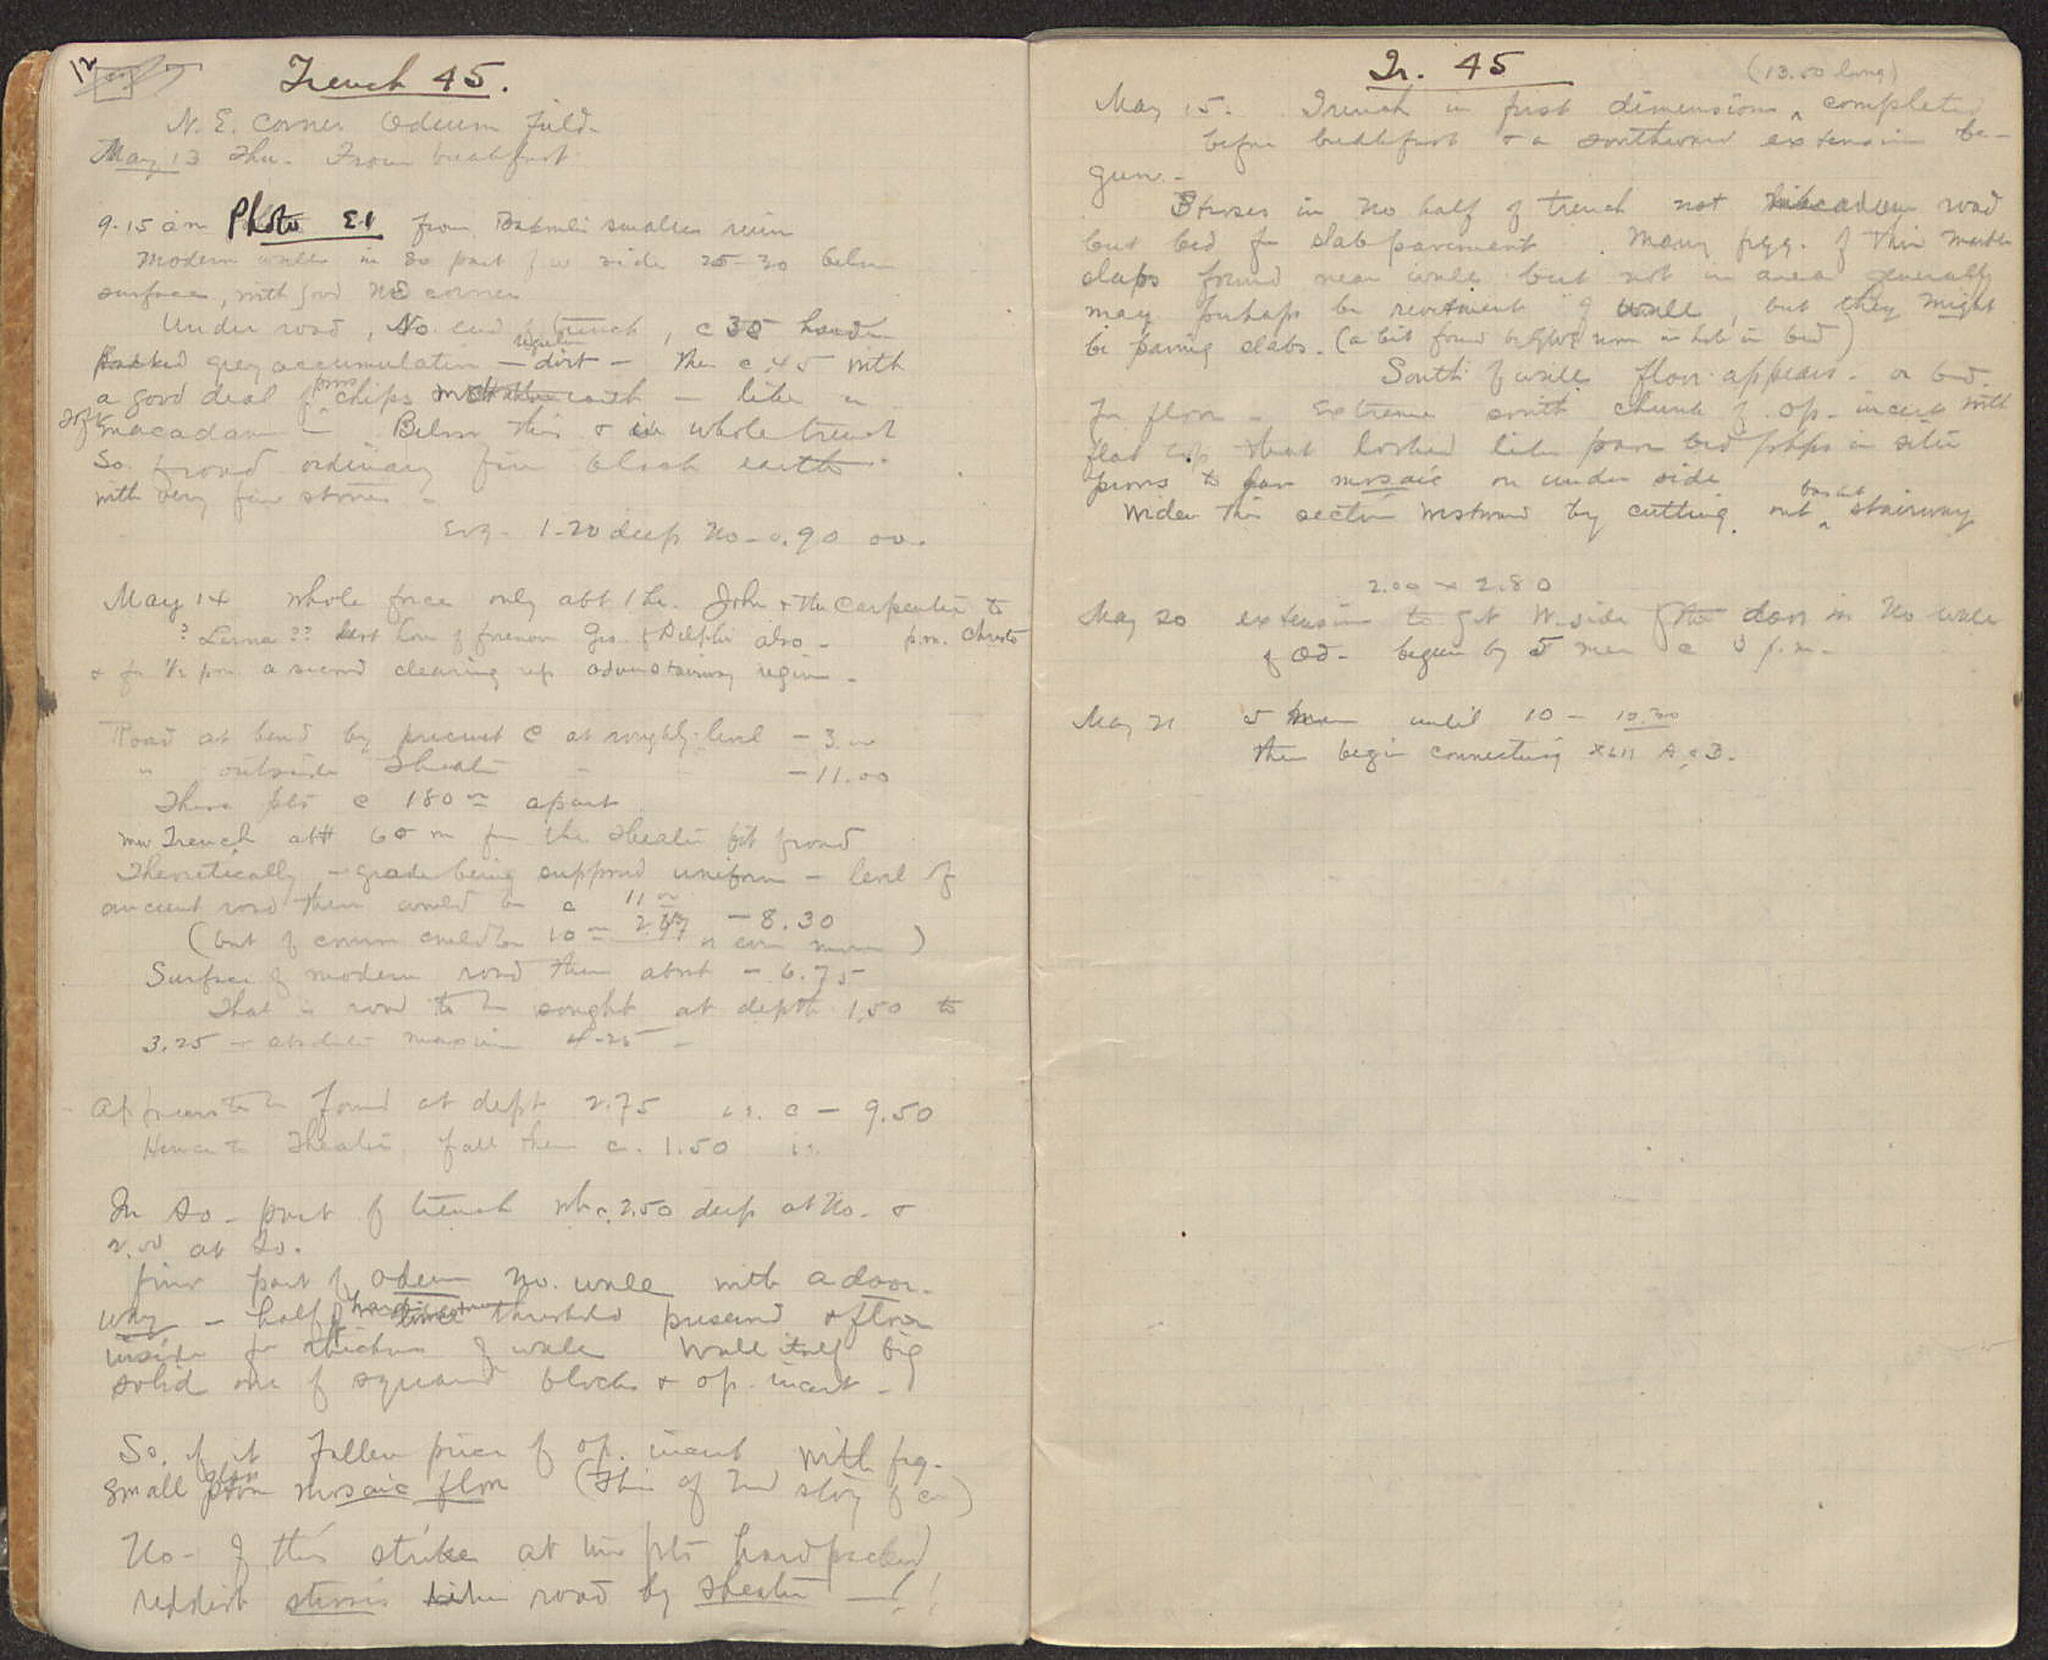 12
Trench 45.
N. E. corner Odeum field.
May 13 Thu. From breakfast
9.15 am Photo E.1 from smaller ruin
Modern wall in So part of W side 25-30 below
surface, with good NE corner
Under road, No. end of trench, c 35 harder
packed grey accumulation — regular dirt — then c .45 with
a good deal of poros chips with — like a
soft macadam — Below this & in whole trench
So. proved ordinary fine black earth
with very few stones —
Evg. 1.20 deep No — 0.90 So.
May 14 whole force only abt 1 hr. John & the Carpenter to
? Lerna ?? last hour of forenoon Geo. of Delphi also — p.m. Christo
& for ½ p.m. a second clearing up stairway region —
Road at bend by precinct C at roughly level — 3.00
" outside Theater — 11.00
These pts c 180 m apart
new Trench abt 60 m from the Theater pt proved
Theoretically — grade being supposed uniform — level of
ancient road then would be c 11 m
2.67 — 8.30
(but of course could be 10 m or even more)
Surface of modern road there about — 6.75
That is road to be sought at depth 1.50 to
3.25 — absolute maximum 4.25 —
Appears to be found at depth 2.75 i.e. c — 9.50
Hence to Theater fall then c. 1.50
In So — part of trench wh. c. 2.50 deep at No — &
2.00 at So.
find part of Odeum No. wall with a door-
way — half of threshold preserved & floor
inside for thickness of wall Wall itself big
solid one of squared blocks & op. incert —
So. of it fallen piece of op. incert with frg.
small mosaic floor (This of 2nd story of)
No — of this strike at two pts hard packed
reddish stereos like road by Theater — !!
Tr. 45
(13.50 long)
May 15. Trench in first dimensions completed
before breakfast & a southward extension be-
gun. —
Stroses in No half of trench not macadam road
but bed for slab pavement. Many frgg. of thin marble
slabs found near wall but not in area generally
may perhaps be revetment of wall, but they might
be paving slabs. (a bit found in hole in bed)
South of wall floor appears — or bed
for floor — Extreme south chunk of op. incert with
flat top that looked like pave bed perhaps in situ
proves to have mosaic on under side
Widen this section westward by cutting out basket stairway
2.00 x 2.80
May 20 extension to get W. side of the door in No wall
of Od — begun by 5 men c 3 p.m. —
May 21 5 men until 10 — 10.30
then begin connecting A & B.